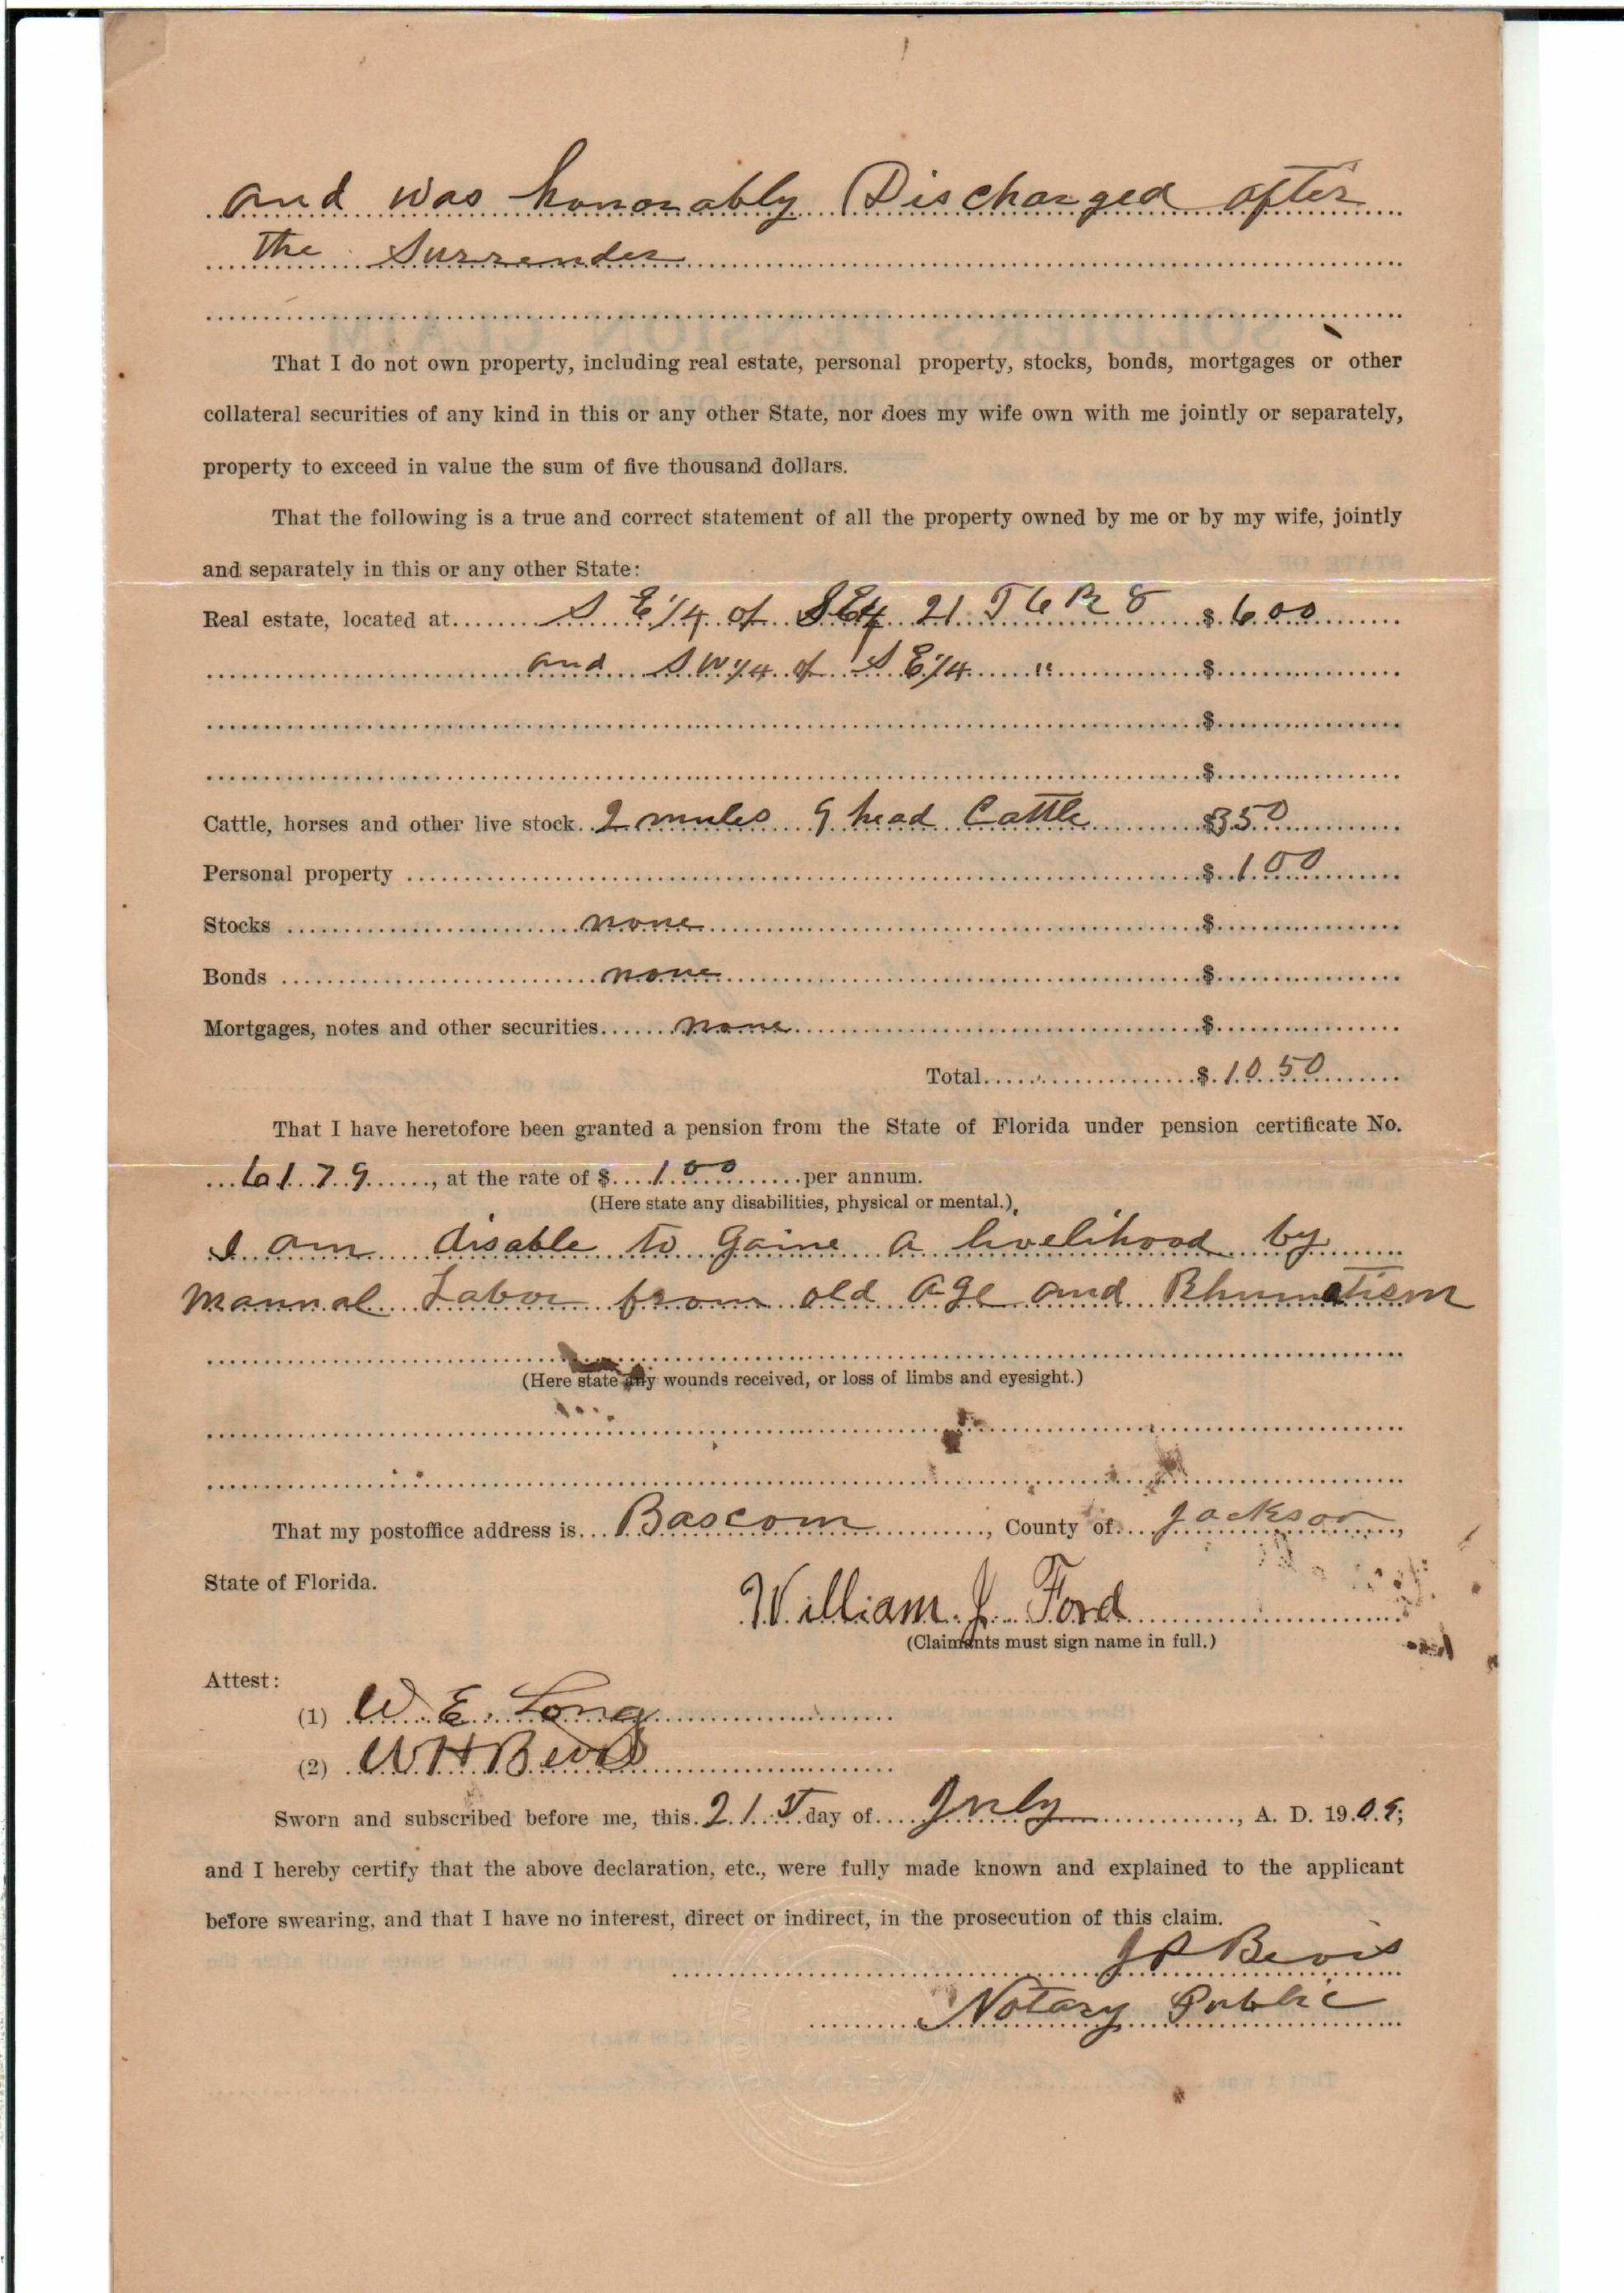 and was honorably Discharged after
the Surrender
That I do not own property, including real estate, personal property, stocks, bonds, mortgages or other
collateral securities of any kind in this or any other State, nor does my wife own with me jointly or separately,
property to exceed in value the sum of five thousand dollars.
That the following is a true and correct statement of all the property owned by me or by my wife, jointly
and separately in this or any other State:
Real estate, located at S E 1/4 of S E 1/4 21 T 6 R 8 $ 600
and S W 1/4 of S E 1/4 " $
$
$
Cattle, horses and other live stock 2 mules 9 head Cattle $350
Personal property $ 100
Stocks none $
Bonds none $
Mortgages, notes and other securities none $
Total $ 1050
That I have heretofore been granted a pension from the State of Florida under pension certificate No.
6179, at the rate of $ 100 per annum.
(Here state any disabilities, physical or mental.)
I am disable to gaine a livelihood by
mannal Labor from old age and Rhumatism
(Here state any wounds received, or loss of limbs and eyesight.)
That my postoffice address is Bascom, County of Jackson,
State of Florida.
William J. Ford
(Claimants must sign name in full.)
Attest:
(1) W. E. Long
(2) W H Bevis
Sworn and subscribed before me, this 21st day of July, A. D. 1909;
and I hereby certify that the above declaration, etc., were fully made known and explained to the applicant
before swearing, and that I have no interest, direct or indirect, in the prosecution of this claim.
J P Bevis
Notary Public